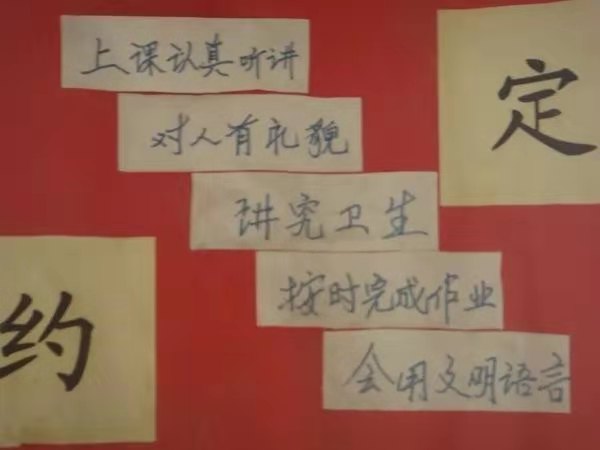 上课认真听讲
定
对人有礼貌
讲究卫生
按时完成作业
约
会用文明语言